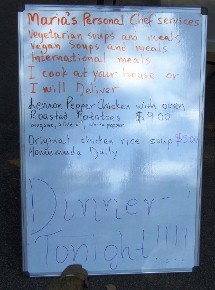 Maria's Personal Chef services
Vegetarian soups and meals
Vegan soups and meals
International meals
I cook at your house or
I will Deliver
Lemon Pepper Chicken with oven
Roasted Potatoes $9.00
Original chicken rice soup $5.00
Homemade Daily
Dinner
Tonight!!!!